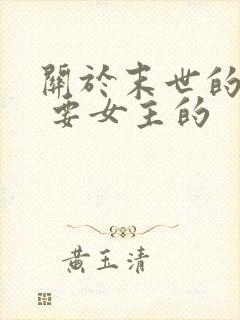 關於末世的
要女主的
黃玉清